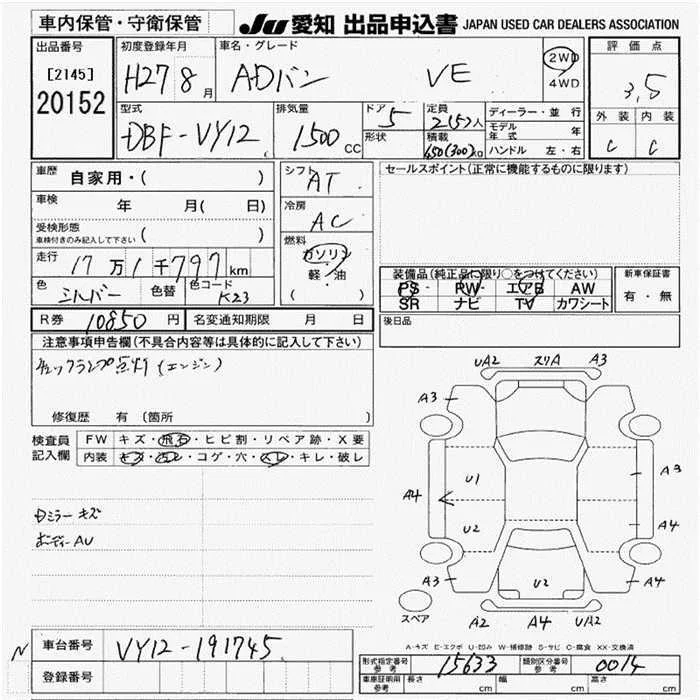 車内保管・守衛保管 JU 愛知 出品申込書 JAPAN USED CAR DEALERS ASSOCIATION
出品番号
[2145]
20152
初度登録年月 H27 8月
車名・グレード ADバン VE
2WD
4WD
評価点
3,5
外装 内装
C C
型式 DBF-VY12
排気量 1500 CC
ドア 5
形状
定員 2(5)人
積載 650(300)kg
ディーラー・並行
モデル年式 年
ハンドル 左・右
車歴 自家用・( )
車検 年 月( 日)
受検形態
車検付きのみ記入して下さい ( )
走行 17万1千797km
色 シルバー 色替 色コード K23
シフト AT
冷房 AC
燃料
ガソリン
軽・油
( )
セールスポイント(正常に機能するものに限ります)
装備品(純正品に限り○をつけてください)
PS PW エアB AW
SR ナビ TV カワシート
新車保証書
有・無
R券 10850円 名変通知期限 月 日
後日品
注意事項申告欄(不具合内容等は具体的に記入して下さい)
チェックランプ点灯(エンジン)
修復歴 有 (箇所 )
検査員
記入欄
FW キズ・飛石・ヒビ割・リペア跡・X要
内装 キズ・汚レ・コゲ・穴・スレ・キレ・破レ
Dミラー キズ
ボディーAU
UA2 スリA A3
A3
A3
U1
A4
U2
A4
A3
U2
A4
スペア
A2 A4 UA2
A-キズ E-エクボ U-凹み W-補修跡 S-サビ C-腐食 XX-交換済
N 車台番号 VY12-191745
登録番号
形式指定番号 参考 15633 類別区分番号 参考 0014
車庫証明用 参考 長さ cm 幅 cm 高さ cm